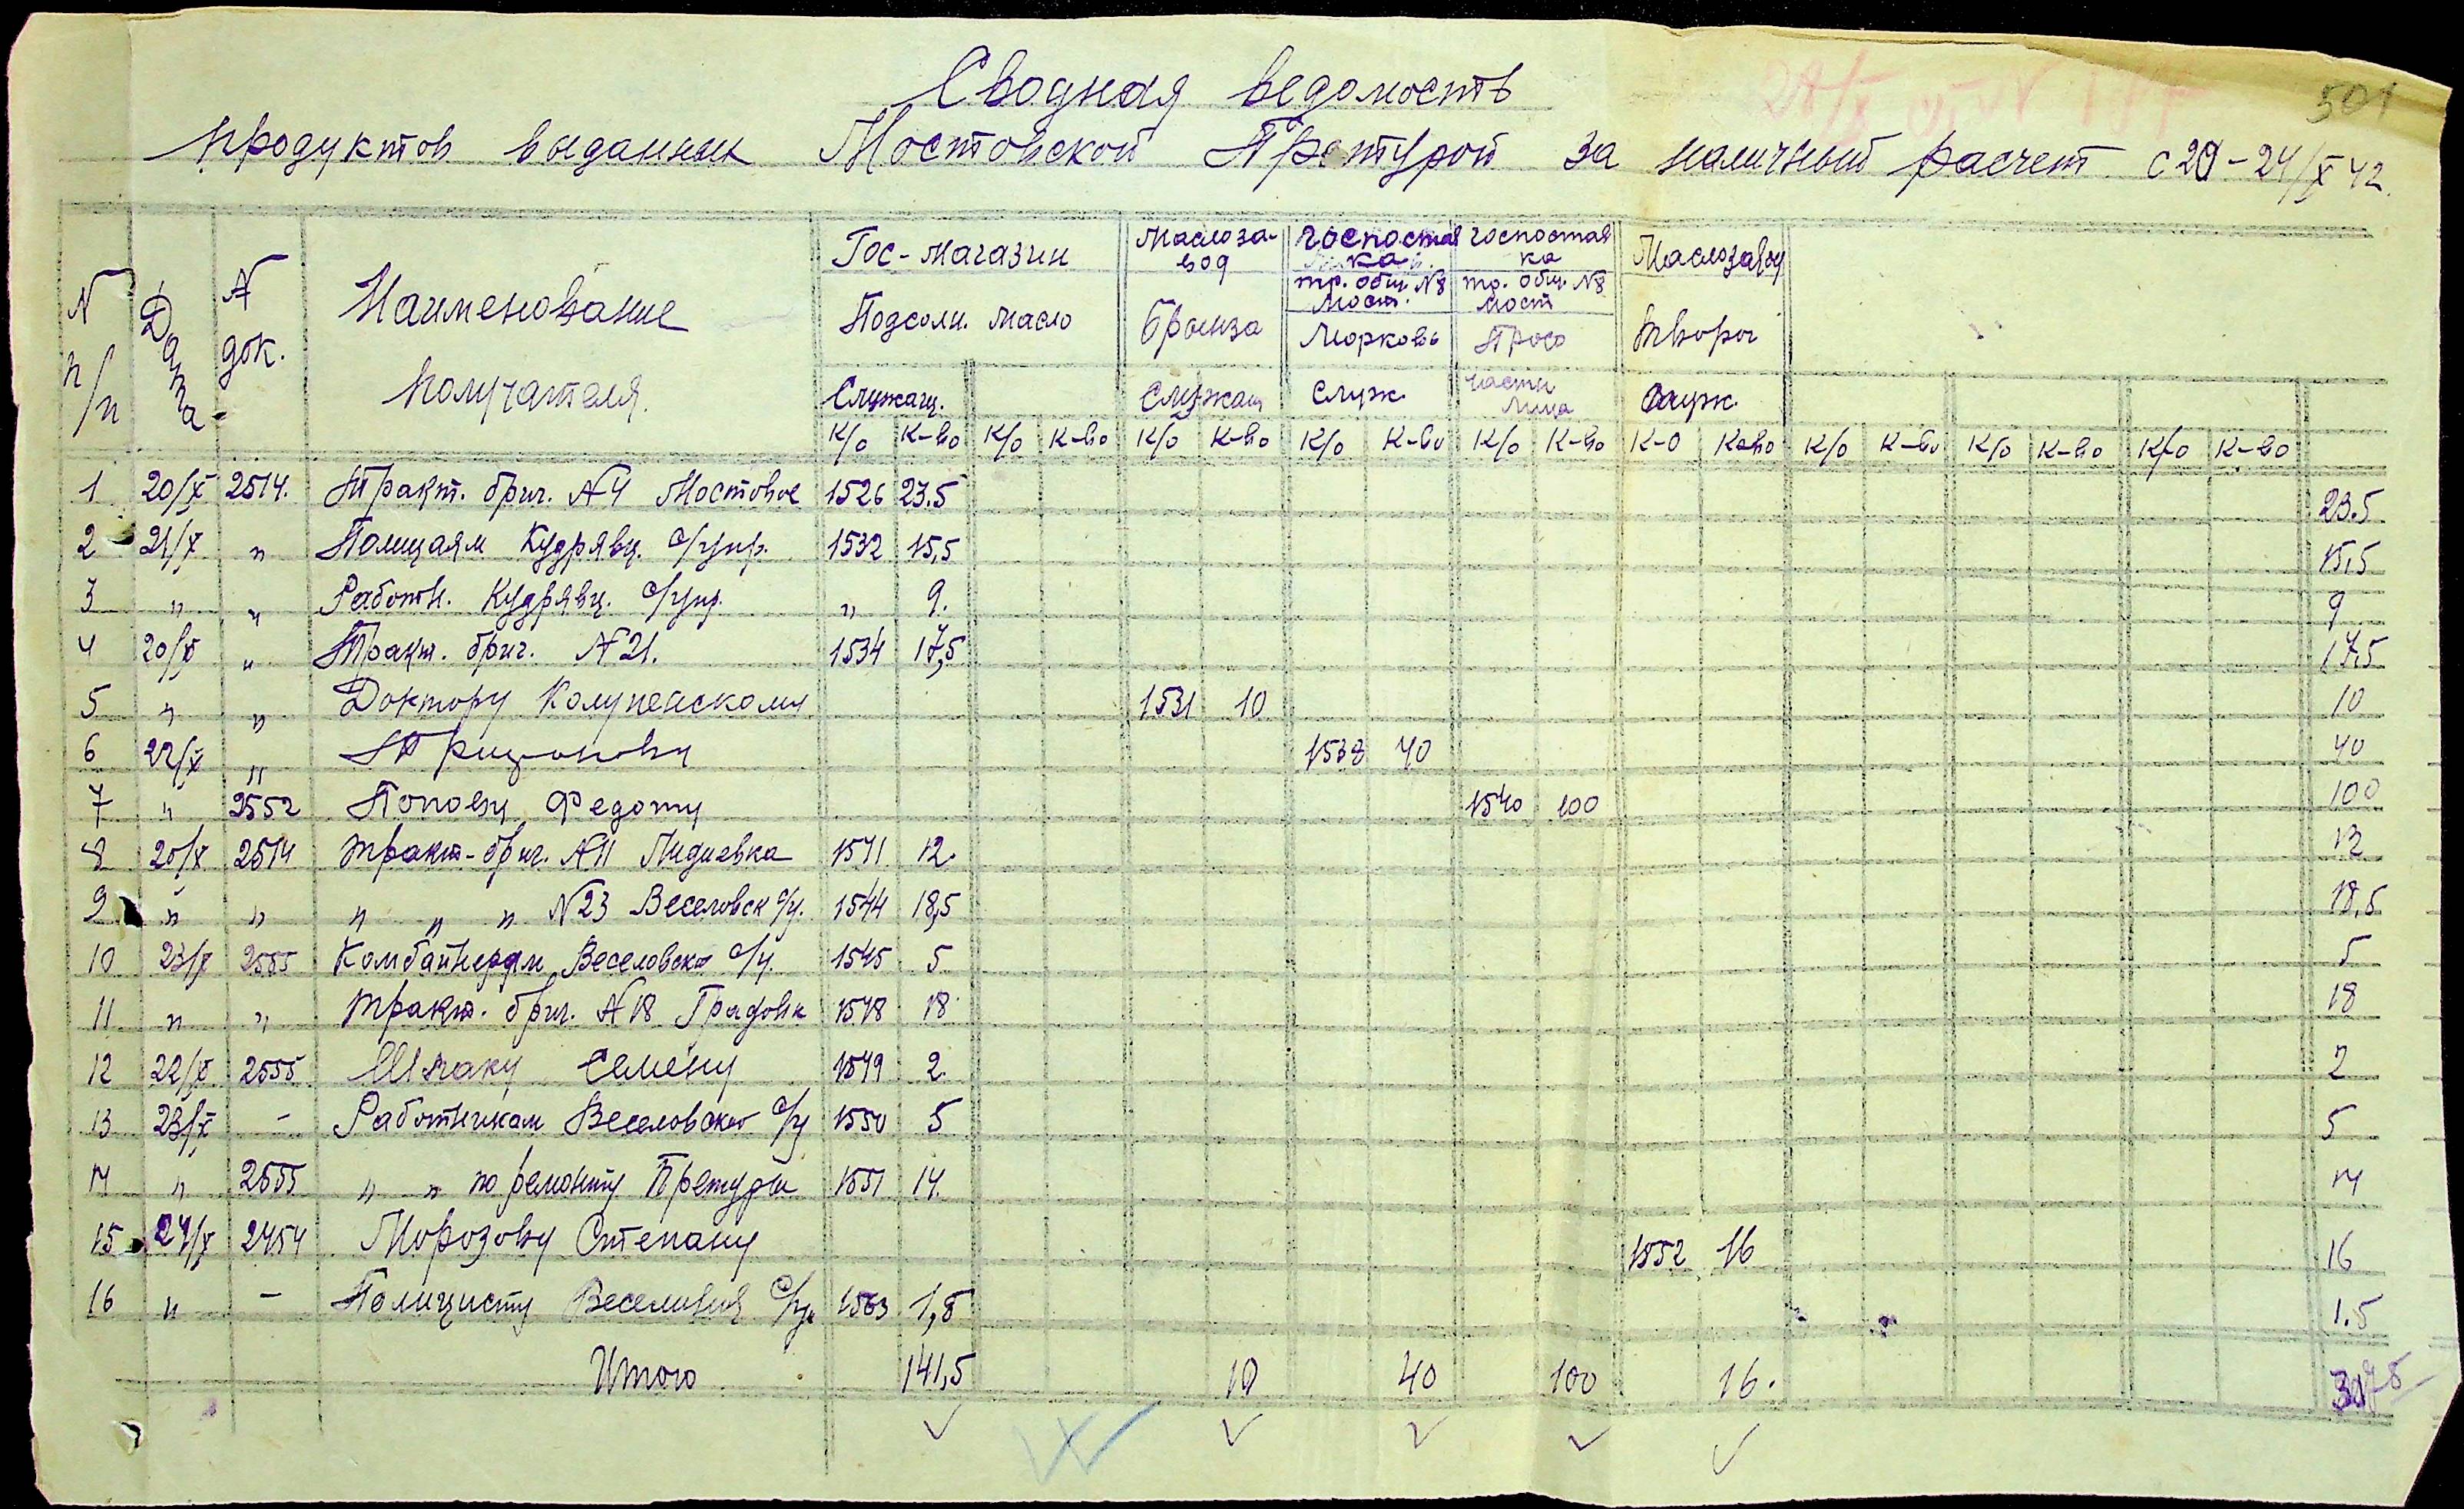 501
Сводная ведомость
продуктов выданных Мостовской Претурой за наличный расчет с 20-24/X 42.
N п/п Дата N док. Наименование получателя
Гос-магазин Маслозавод Госпоставка Госпоставка Маслозавод
тр. общ. N8 Мост. тр. общ. N8 Мост
Подсолн. масло Брынза Морковь Просо Творог
Служащ. Служащ Служ. Части Лица Служ.
К/о К-во К/о К-во К/о К-во К/о К-во К/о К-во К-о К-во К/о К-во К/о К-во К/о К-во
1 20/X 2514. Тракт. бриг. N4 Мостовое 1526 23.5 23.5
2 21/X " Полицаям Кудрявц. с/упр. 1532 15,5 15,5
3 " " Работн. Кудрявц. с/упр. " 9. 9
4 20/X " Тракт. бриг. N21. 1534 17,5 17,5
5 " " Доктору 1531 10 10
6 22/X " 1538 40 40
7 " 2552 Попову Федоту 1540 100 100
8 20/X 2514 Тракт-бриг. N11 Лидиевка 1541 12. 12
9 " " " " " N23 Веселовск с/у. 1544 18,5 18,5
10 23/X 2555 Комбайнерам Веселовско с/у. 1545 5 5
11 " " Тракт. бриг. N18 Градовк 1548 18 18
12 22/X 2555 Семену 1549 2. 2
13 23/X - Работникам Веселовско с/у 1550 5 5
14 " 2555 " " по ремонту Претуры 1551 14 14
15 24/X 2454 Морозову Степану 1552 16 16
16 " - Полицисту с/у 1563 1,5 1.5
Итого 141,5 10 40 100 16.